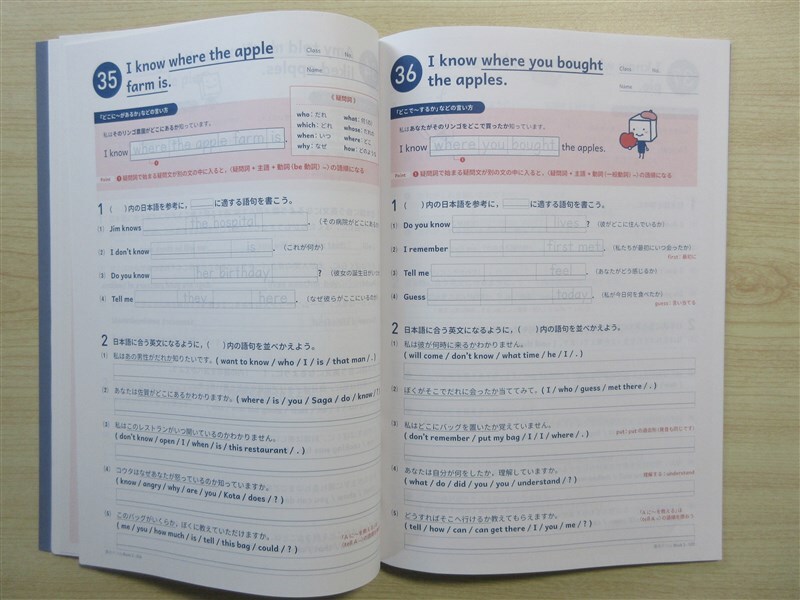 35
I know where the apple
farm is.
Class
No.
Name
「どこに～があるか」などの言い方
私はそのリンゴ農園がどこにあるか知っています。
I know where the apple farm is.
《疑問詞》
who：だれ
what：何(の)
which：どれ
whose：だれの
when：いつ
where：どこ
why：なぜ
how：どのように
Point
❶ 疑問詞で始まる疑問文が別の文の中に入ると、〈疑問詞＋主語＋動詞(be動詞)～〉の語順になる
1 （　）内の日本語を参考に、　　に適する語句を書こう。
(1) Jim knows the hospital . （その病院がどこにあるか
(2) I don't know is . （これが何か）
(3) Do you know her birthday ? （彼女の誕生日がいつ
(4) Tell me they here . （なぜ彼らがここにいるのか
2 日本語に合う英文になるように、（　）内の語句を並べかえよう。
(1) 私はあの男性がだれか知りたいです。( want to know / who / I / is / that man / . )
(2) あなたは佐賀がどこにあるかわかりますか。( where / is / you / Saga / do / know / ?
(3) 私はこのレストランがいつ開いているのかわかりません。
( don't know / open / I / when / is / this restaurant / . )
(4) コウタはなぜあなたが怒っているのか知っていますか。
( know / angry / why / are / you / Kota / does / ? )
(5) このバッグがいくらか、ぼくに教えていただけますか。
( me / you / how much / is / tell / this bag / could / ? )
36
I know where you bought
the apples.
Class
No.
Name
「どこで～するか」などの言い方
私はあなたがそのリンゴをどこで買ったか知っています。
I know where you bought the apples.
Point
❶ 疑問詞で始まる疑問文が別の文の中に入ると、〈疑問詞＋主語＋動詞(一般動詞)～〉の語順になる
1 （　）内の日本語を参考に、　　に適する語句を書こう。
(1) Do you know lives ? （彼がどこに住んでいるか）
(2) I remember first met . （私たちが最初にいつ会ったか）
first：最初に
(3) Tell me feel . （あなたがどう感じるか）
(4) Guess today . （私が今日何を食べたか）
guess：言い当てる
2 日本語に合う英文になるように、（　）内の語句を並べかえよう。
(1) 私は彼が何時に来るかわかりません。
( will come / don't know / what time / he / I / . )
(2) ぼくがそこでだれに会ったか当ててみて。( I / who / guess / met there / . )
(3) 私はどこにバッグを置いたか覚えていません。
( don't remember / put my bag / I / I / where / . )
(4) あなたは自分が何をしたか、理解していますか。
理解する：understand
( what / do / did / you / you / understand / ? )
(5) どうすればそこへ行けるか教えてもらえますか。
( tell / how / can / can get there / I / you / me / ? )